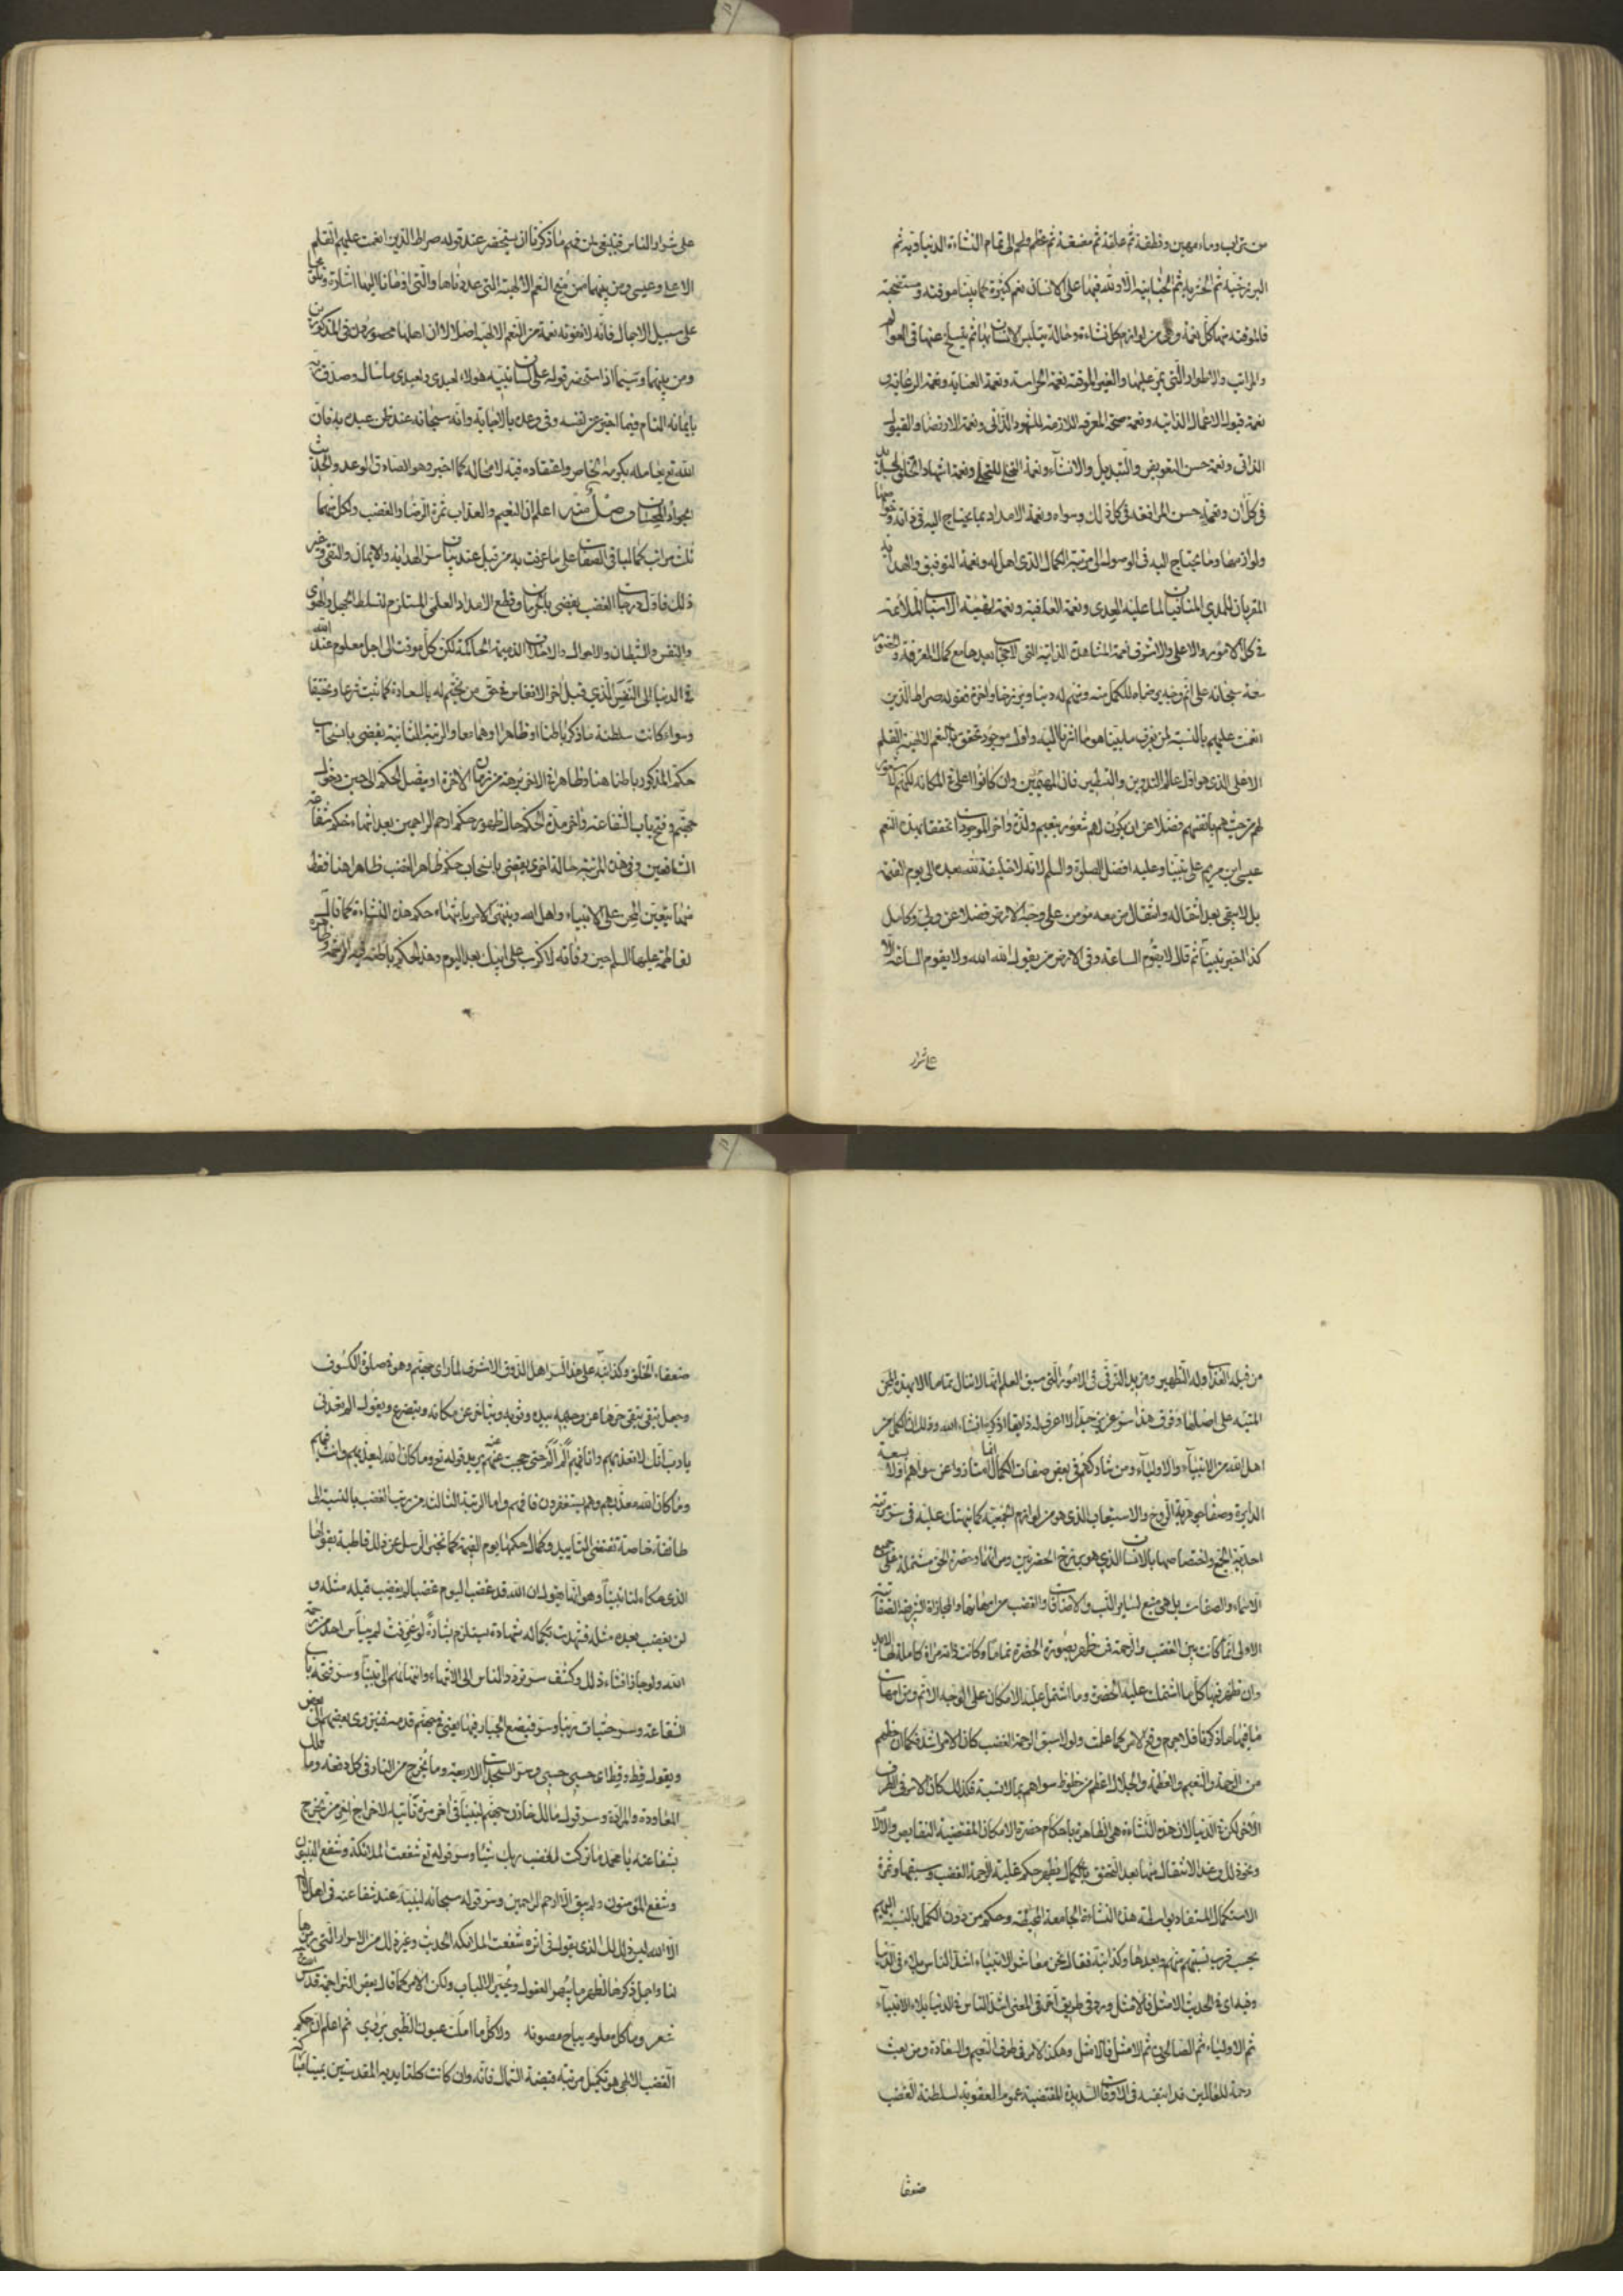 من تراب وماء مهين ونطفة ثم علقة ثم مضغة ثم عظم ولحم الى تمام النشاءة الدنياوية ثم
البرزخية ثم الحشرية ثم الجنانية الا ولله فيها على الانسان نعم كثيرة كما بينا موقتة ومستصحبة
فالموقتة منها كل نعمة هى من لوازم كل نشاءة وحالة يتلبس الانسان بها ثم ينسلخ عنها فى العوالم
والمراتب والاطوار التى يمر عليها والغير الموقتة نعمة الحراسة ونعمة العناية ونعمة الرعاية و
نعمة قبول الاعمال الذاتية ونعمة صحة المعرفة اللازمة للشهود الذاتى ونعمة الارتضاء والقبول
الذاتى ونعمة حسن التعويض والتبديل والانشاء ونعمة التجلى ونعمة اشهاد الخلق الجديد
فى كل ان ونعمة حسن المرافقة فى كل ذلك وسواه ونعمة الامداد بما يحتاج اليه فى ذاته وخواصها
ولوازمها وما يحتاج اليه فى الوصول الى مرتبة الكمال الذى اهل له ونعمة التوفيق والهداية
المقربان للمدى المنافيان لما عليه العدى ونعمة العافية ونعمة تهيئة الاسباب الملائمة
فى كل الامور والاعلى والاشرف نعمة المشاهدة الذاتية التى لا حجاب بعدها مع كمال المعرفة والحضور
معه سبحانه على اتم وجه يرضاه للكمل منه ومنهم له دنيا وبرزخا واخرة فقوله صراط الذين
انعمت عليهم بالنسبة لمن يعرف ما بينا هو ما اشرنا اليه واول موجود تحقق بالنعم الالهية القلم
الاعلى الذى هو اول عالم التدوين والتسطير فان المهيمين وان كانوا اعلى فى المكانة لكنهم لا شعور
لهم من حيث هم بانفسهم فضلا عن ان يكون لهم شعور بنعيم ولذة واخر الموجودات تحققا بهذه النعم
عيسى ابن مريم على نبينا وعليه افضل الصلوة والسلم لانه لا خليفة لله بعده الى يوم القيمة
بل لا يبقى بعد انتقاله وانتقال من معه مؤمن على وجه الارض فضلا عن ولى وكامل
كذا اخبر نبينا ثم قال لا تقوم الساعة وفى الارض من يقول الله الله ولا يقوم الساعة الا
على شرار
على شرار الناس فينبغى لمن فهم ما ذكرنا ان يستحضر عند قوله صراط الذين انعمت عليهم القلم
الاعلى وعيسى ومن بينهما ممن منح النعم الالهية التى عددناها والتى اومانا اليها اشارة وتلويحا
على سبيل الاجمال فانه لا تفوته نعمة من النعم الالهية اصلا لان اهلها محصورون فى المذكورين
ومن بينهما وسيما اذا استحضر قوله على لسان نبيه هولاء لعبدى ولعبدى ما سال وصدق به
بايمانه التام فيما اخبر عن نفسه وفى وعده بالاجابة وانه سبحانه عند ظن عبده به فان
الله تع يعامله بكرمه الخاص واعتقاده فيه لا محالة كما اخبر وهو الصادق الوعد والحديث
الجواد المحسان وصل منه اعلم ان النعيم والعذاب ثمرة الرضا والغضب ولكل منهما
ثلث مراتب كما لباقى الصفات على ما عرفت به من قبل عند بيان سر الهداية والايمان والتقى وغير
ذلك فاول درجات الغضب يقضى بالحرمان وقطع الامداد العلمى المستلزم لتسلط الجهل والهوى
والنفس والشيطان والاحوال والاخلاق الذميمة الحاكمة لكن كل موقت الى اجل معلوم عند الله
فى الدنيا الى النفس الذى قبل اخر الانفاس فى حق من يختم له بالسعادة كما ثبت شرعا وتحقيقا
وسواء كانت سلطنة ما ذكر باطنا او ظاهرا او هما معا والرتبة الثانية يقضى بانسحاب
حكم المذكور باطنا هنا وظاهرا فى الاخرة برهة من زمان الاخرة او يتصل الحكم الى حين دخول
جهنم وفتح باب الشفاعة واخر مدة الحكم حال ظهور حكم ارحم الراحمين بعد انتهاء حكم شفاعة
الشافعين وفى هذه المرتبة حالة اخرى يقضى بانسحاب حكم ظاهر الغضب ظاهرا هنا فقط
منها تتعين المحن على الانبياء واهل الله وينتهى الامر بانتهاء حكم هذه النشاءة كما قال
لفاطمة عليها السلم حين وفاته لا كرب على ابيك بعد اليوم وهذا الحكم باطنه فيه الرحمة وظاهره
من قبله العذاب وله التطهير ومزيد الترقى فى الامور التى سبق العلم انها لا تنال تماما الا بهذه المحن
المنبه على اصلها وفوق هذا سر عزيز جدا لا اعرف له ذايقا اذكره انشاء الله وذلك ان الكمل من
اهل الله من الانبياء والاولياء ومن شاركهم فى بعض صفات الكمال انما امتازوا عن سواهم اولا بسعة
الدايرة وصفاء جوهرية الروح والاستيعاب الذى هو من لوازم الجمعية كما نبهتك عليه فى سر مرتبة
احدية الجمع واختصاصها بالانسان الذى هو برزخ الحضرتين ومراتهما وحضرة الحق مشتملة على جميع
الاسماء والصفات بل هى منبع لساير النسب والاضافات والغضب من امهاتها والمجازاة الشريفة الصفاتية
الاولى انما كانت بين الغضب والرحمة فمن ظهر بصورة الحضرة تماما وكانت ذاته مراة كاملة لها لا بد
وان تظهر فيها كل ما اشتملت عليه الحضرة وما اشتمل عليه الامكان على الوجه الاتم ومن امهات
ما فيهما ما ذكرنا فلا جرم وقع الامر كما علمت ولولا سبق الرحمة الغضب كان الامر اشد فكما ان حظهم
من الرحمة والنعيم والعظمة والجلال اعظم من حظوظ سواهم بما لا نسبة فكذلك كان الامر فى الطرف
الاخر لكن فى الدنيا لان هذه النشاءة هى الظاهرة باحكام حضرة الامكان المقتضية النقايص والالام
ونحو ذلك وعند الانتقال منها بعد التحقق بالكمال يظهر حكم غلبة الرحمة الغضب وسبقها وثمرة
الاستكمال المستفاد بواسطة هذه النشاءة الجامعة المحيطة وحكم من دون الكمل بالنسبة اليهم
بحسب قرب نسبتهم منهم وبعدها وكذا نبه فقال نحن معاشر الانبياء اشد الناس بلاء فى الدنيا
وفيه اى فى الحديث الامثل فالامثل ورد فى طريق اخر فى المعنى اشد الناس فى الدنيا بلاء الانبياء
ثم الاولياء ثم الصالحون ثم الامثل فالامثل وهكذا الامر فى طرف النعيم والسعادة ومن بعث
رحمة للعالمين فدا بنفسه فى الاوقات الشديدة المقتضية عموم العقوبة لسلطنة الغضب
ضعفا
ضعفاء الخلق وكذا نبه على هذا السر اهل الذوق الاشرف لما راى جهنم وهو فى صلوة الكسوف
وجعل يتقى حرها عن وجهه بيده وثوبه ويتاخر عن مكانه ويتضرع ويقول الم تعدنى
يا رب انك لا تعذبهم وانا فيهم الم الم حتى حجبت عنهم يريد قوله تع وما كان الله ليعذبهم وانت فيهم
وما كان الله معذبهم وهم يستغفرون فافهم واما الرتبة الثالثة من رتب الغضب بالنسبة الى
طائفة خاصة تقتضى التابيد وكمال حكمها يوم القيمة كما تخبر الرسل عن ذلك قاطبة بقولها
الذى حكاه لنا نبينا وهو انها يقول ان الله قد غضب اليوم غضبا لم يغضب قبله مثله و
لن يغضب بعده مثله فشهدت بكماله شهادة يستلزم بشارة لو عرفت لم ييأس احد من رحمة
الله ولو جاز افشاء ذلك وكشف سر تردد الناس الى الانبياء وانتهائهم الى نبينا وسر فتحه باب
الشفاعة وسر حثيات ربنا وسر فيضع الجبار فيها يعنى فى جهنم قدمه فينزوى بعضها الى بعض
ويقول قط قط اى حسبى حسبى وسر السجدات الاربعة وما يخرج من النار فى كل دفعة وما تلك
المعاودة والمرادة وسر قول مالك خازن جهنم لنبينا فى اخر مرة تاتيه لاخراج اخر من يخرج
بشفاعته يا محمد ما تركت لغضب ربك شيئا وسر قوله تع شفعت الملائكة وشفع النبيون
وشفع المؤمنون ولم يبق الا ارحم الراحمين وسر قوله سبحانه لنبيه عند شفاعته فى اهل لا اله
الا الله ليس ذلك لك الذى يقول فى اثره شفعت الملائكة الحديث وغير ذلك من الاسرار التى رمزها
لنا واجمل ذكرها لظهر ما يبهر العقول ويحير الالباب ولكن الامر كما قال بعض التراجمة قدس
شعر وما كل معلوم يباح مصونه ولا كل ما املت عيون الظبى يروى ثم اعلم ان حكم
الغضب الالهى هو تكميل مرتبة قبضة الشمال فانه وان كانت كلتا يديه المقدستين يمينا مباركة